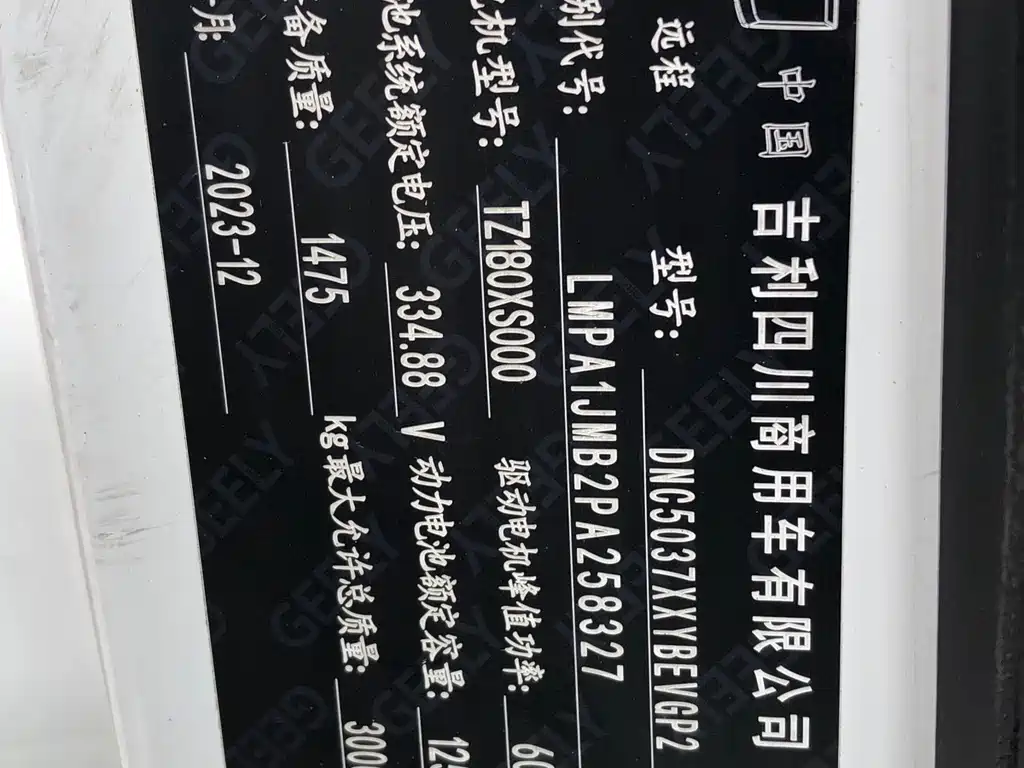 中国 吉利四川商用车有限公司
远程 型号: DNC5037XXYBEVGP2
别代号: LMPA1JMB2PA258327
机型号: TZ180XS000 驱动电机峰值功率: 60
池系统额定电压: 334.88 V 动力电池额定容量: 125
备质量: 1475 kg 最大允许总质量: 300
月: 2023-12